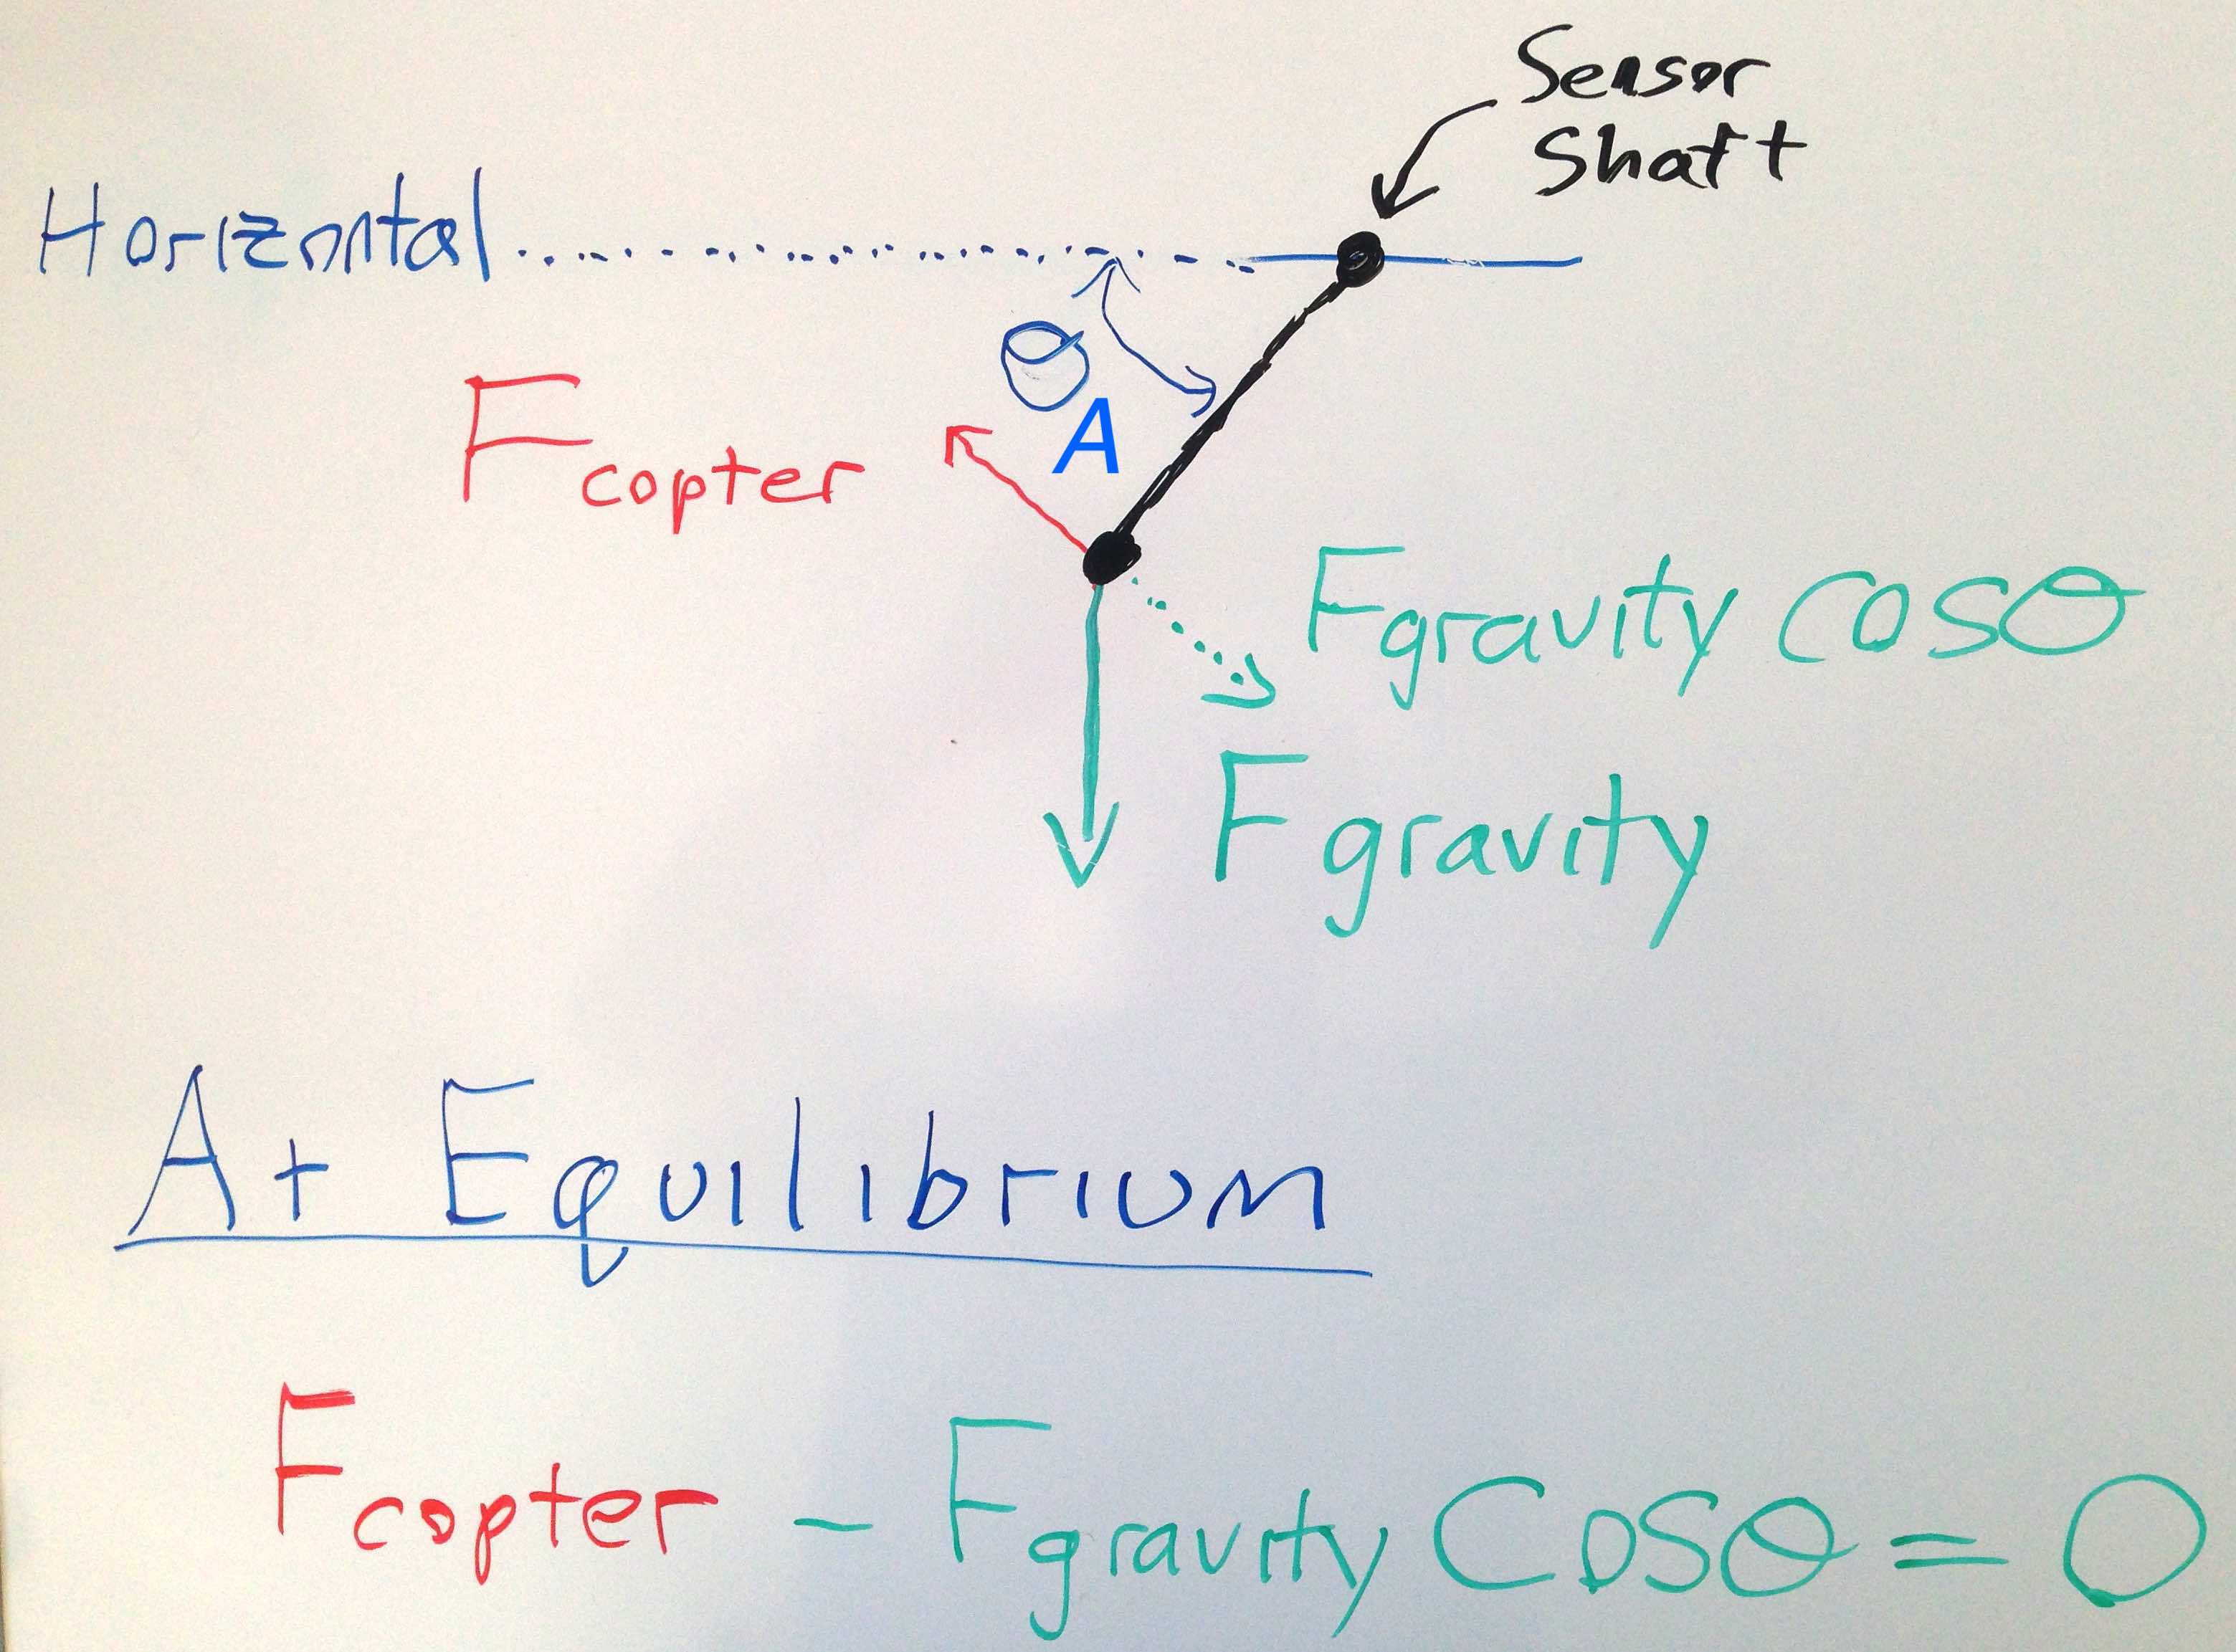 Sensor
Shaft
Horizontal
θA
Fcopter
Fgravity cosθ
Fgravity
At Equilibrium
Fcopter - Fgravity cosθ = 0